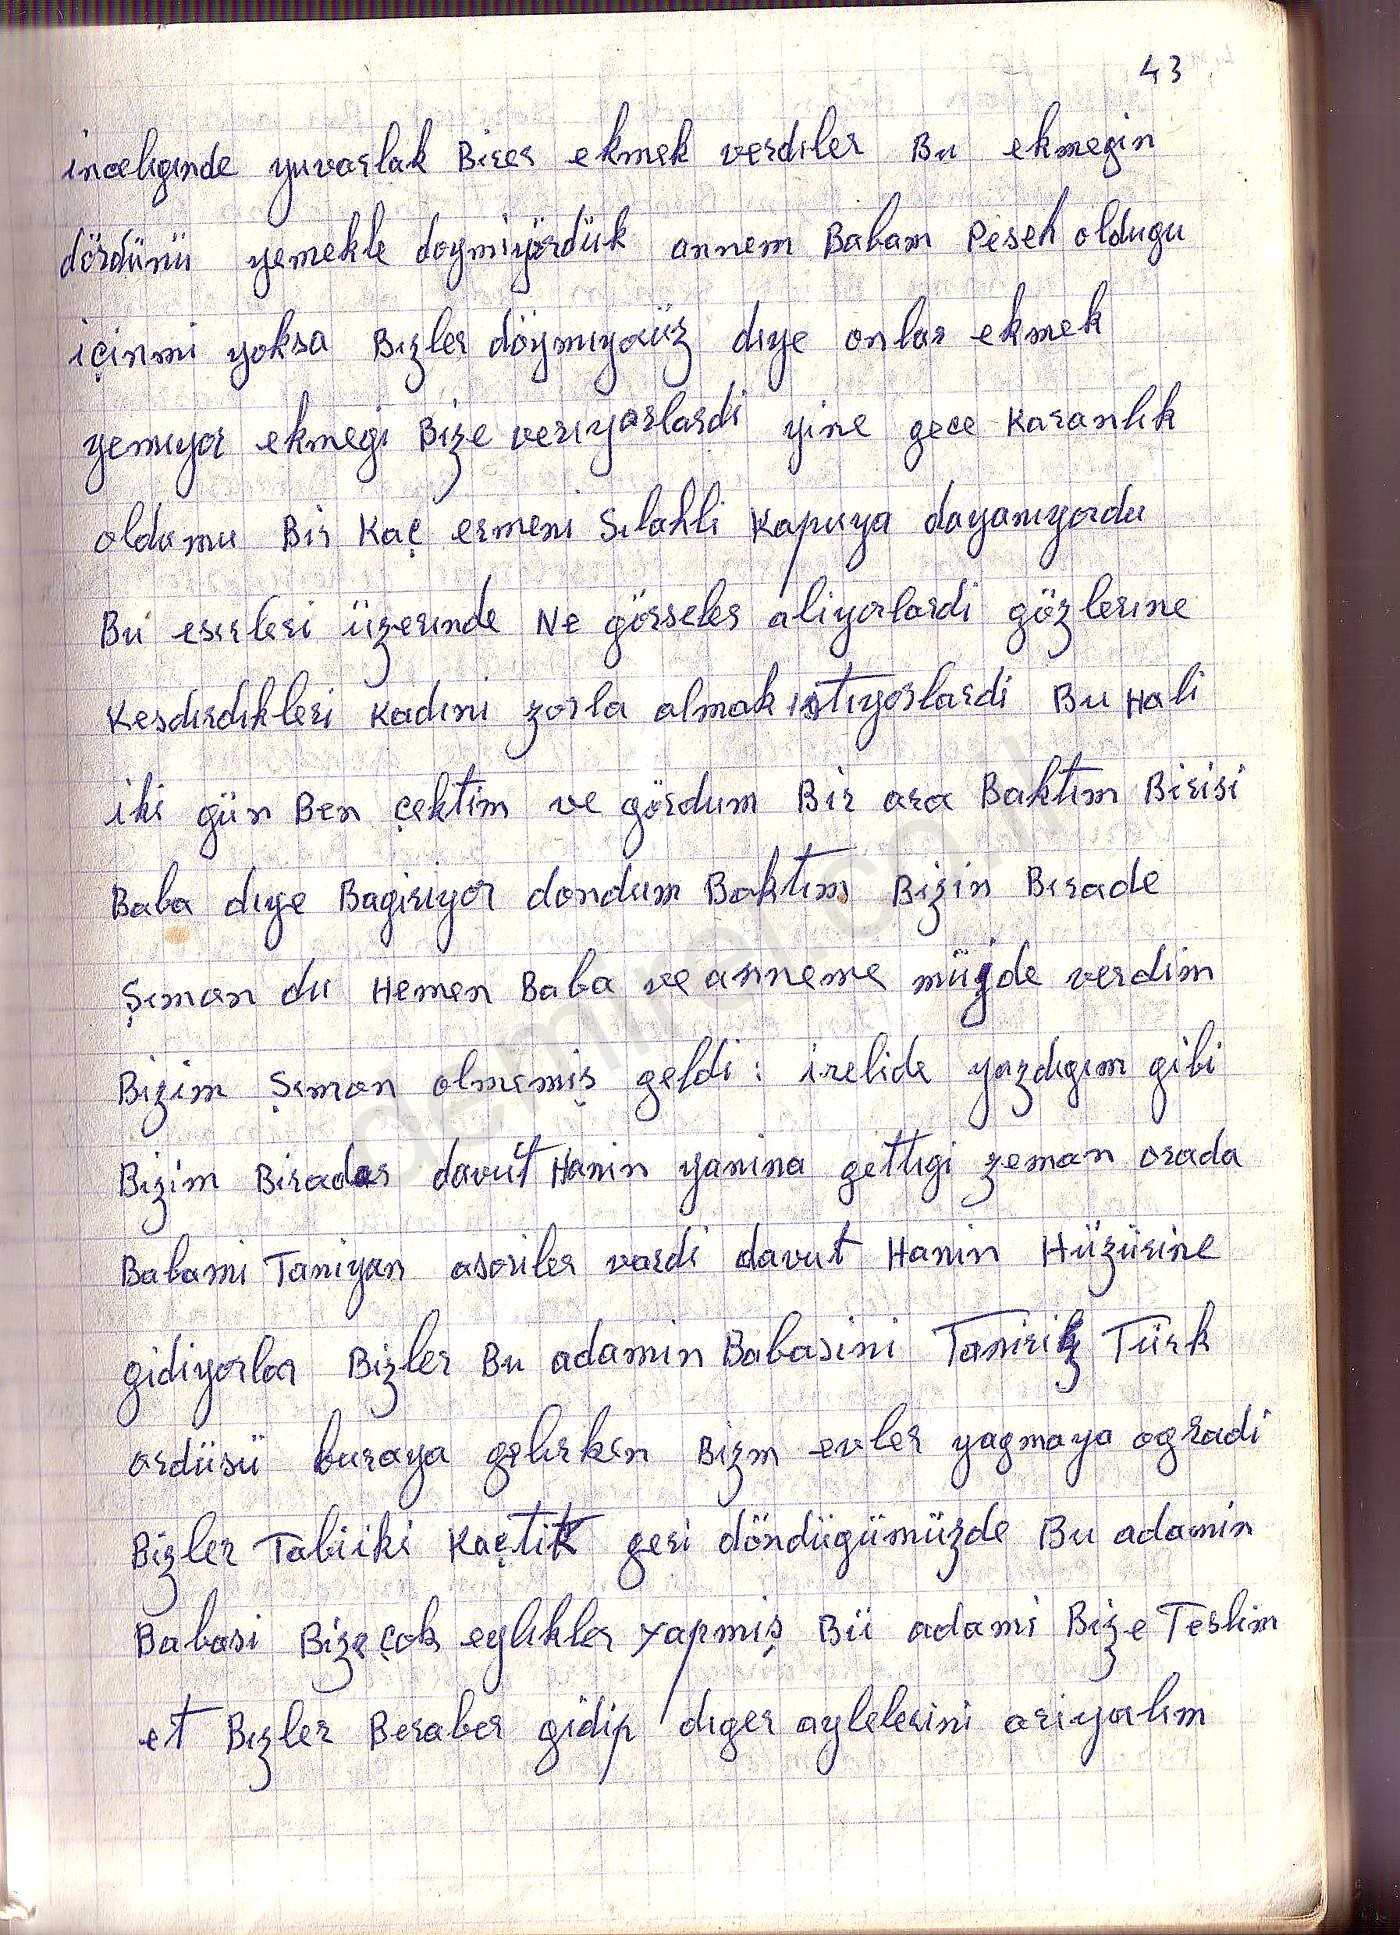 43
inceliginde yuvarlak Birer ekmek verdiler Bu ekmegin
dördünü yemekle doymiyördük annem Babam Peseh oldugu
içinmi yoksa Bizler döymıyoüz dıye onlar ekmek
yemıyor ekmegi Bize verıyorlardi yine gece karanlık
oldumu Bir kaç ermeni Sılahli kapuya dayanıyordu
Bu esırleri üzerınde Ne görseler aliyorlardi gözlerıne
kesdırdıkleri kadıni zorla almak ıstıyorlardi Bu Hali
iki gün Ben çektim ve gördum Bir ara Baktım Birisi
Baba dıye Bagiriyor dondum Baktım Bizin Bırade
Şıman du Hemen Baba ve anneme müjde verdim
Bizim Şıman olmemiş geldi: irelide yazdıgım gibi
Bizim Birader davut Hanin yanina gettıgi zeman orada
Babami Taniyan asoriler vardi davut Hanin Hüzürine
gidiyorlar Bizler Bu adamin Babasini Taniriz Türk
ordüsü buraya gelırken Bizm evler yagmaya ogradi
Bizler Tabiiki kaçtik geri döndügümüzde Bu adamin
Babasi Bize çok eylıkler yapmiş Bü adami Bize Teslim
et Bızler Beraber gidip dıger aylelerini ariyalım
demirel.co.il